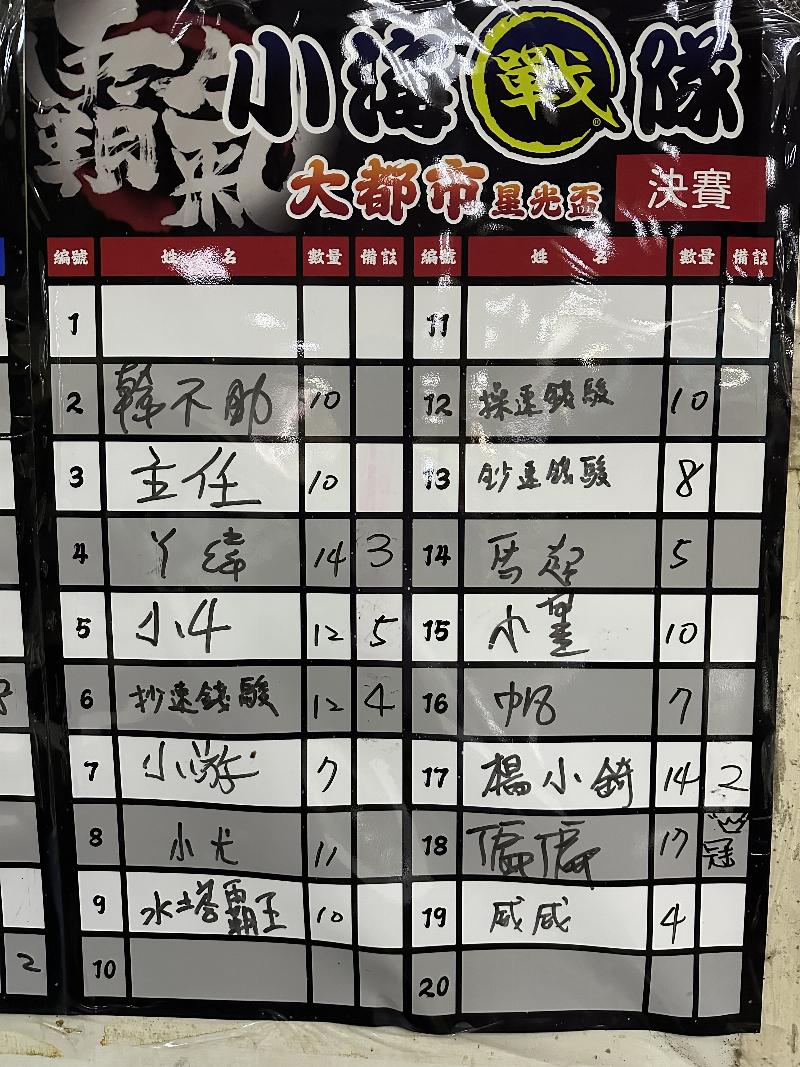 霸氣
小海戰隊
大都市星光盃 決賽
編號 姓名 數量 備註 編號 姓名 數量 備註
1 11
2 韓不助 10 12 操速錢駿 10
3 主任 10 13 鈔速錢駿 8
4 丫緯 14 3 14 馬起 5
5 小牛 12 5 15 小星 10
6 抄速錢駿 12 4 16 帕 7
7 小游 7 17 楊小錡 14 2
8 小尤 11 18 17 冠
9 水塔霸王 10 19 咸咸 4
10 20
2